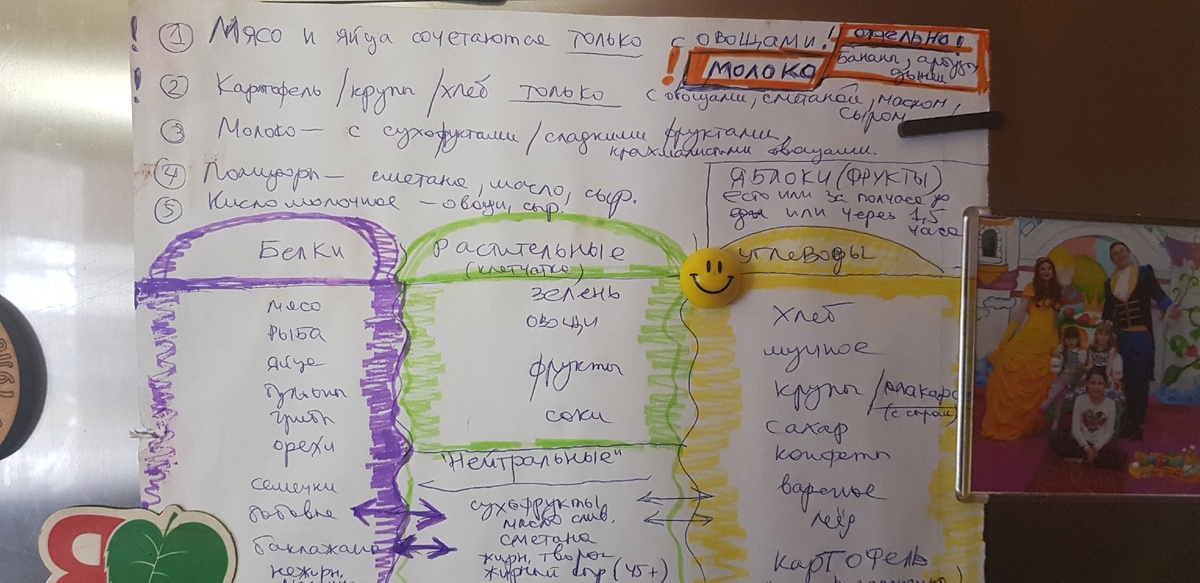 ! ① Мясо и яйца сочетаются только с овощами!
! отдельно!
! МОЛОКО
бананы, арбузы, дыни
! ② Картофель / крупы / хлеб только с овощами, сметаной, маслом, сыром
③ Молоко — с сухофруктами / сладкими фруктами, крахмалистыми овощами.
④ Помидоры — сметана, масло, сыр.
⑤ Кисломолочное — овощи, сыр.
ЯБЛОКИ (ФРУКТЫ)
есть или за полчаса до
еды или через 1,5
часа
Белки
мясо
рыба
яйца
бульоны
грибы
орехи
семечки
бобовые
баклажаны
нежирн.
Растительные
(клетчатка)
зелень
овощи
фрукты
соки
"Нейтральные"
сухофрукты
масло слив.
сметана
жирн. творог
жирный сыр (45+)
углеводы
хлеб
мучное
крупы / макароны
(с сыром)
сахар
конфеты
варенье
мёд
картофель
Я